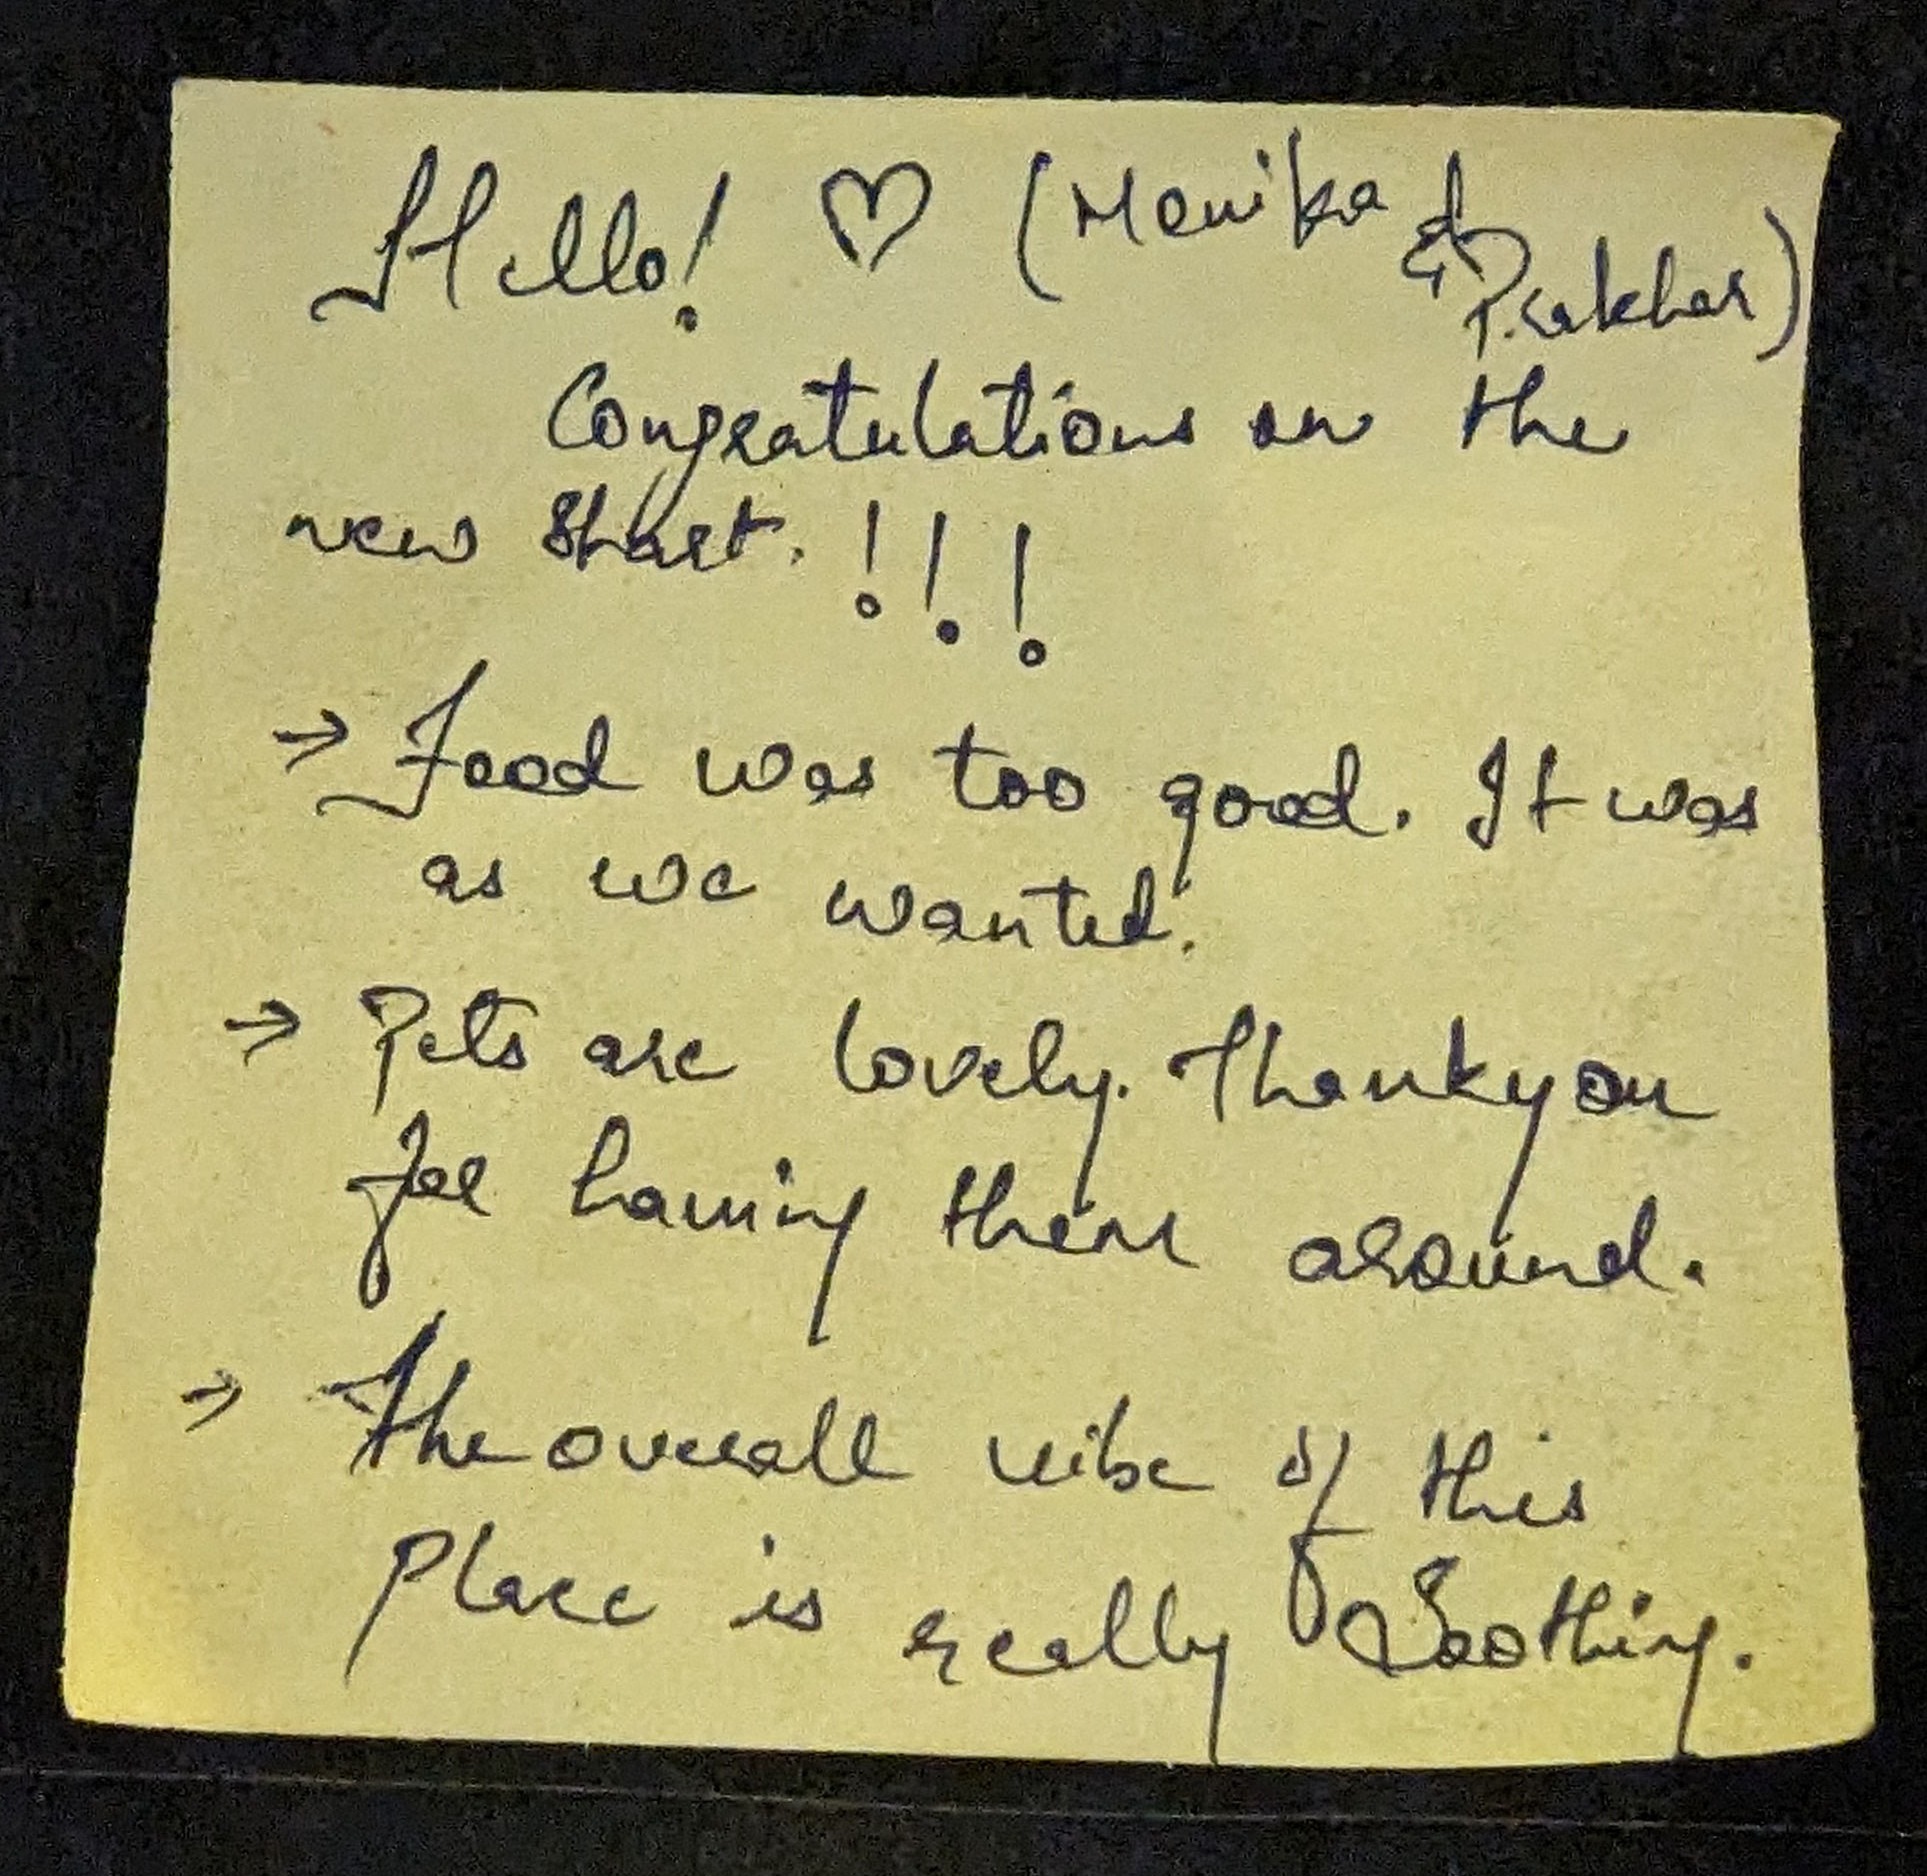 Hello! ♡ (Monika &
Prakhar)
Congratulations on the
new start. !!!
→ Food was too good. It was
as we wanted.
→ Pets are lovely. Thankyou
for having them around.
→ The overall vibe of this
place is really Soothing.